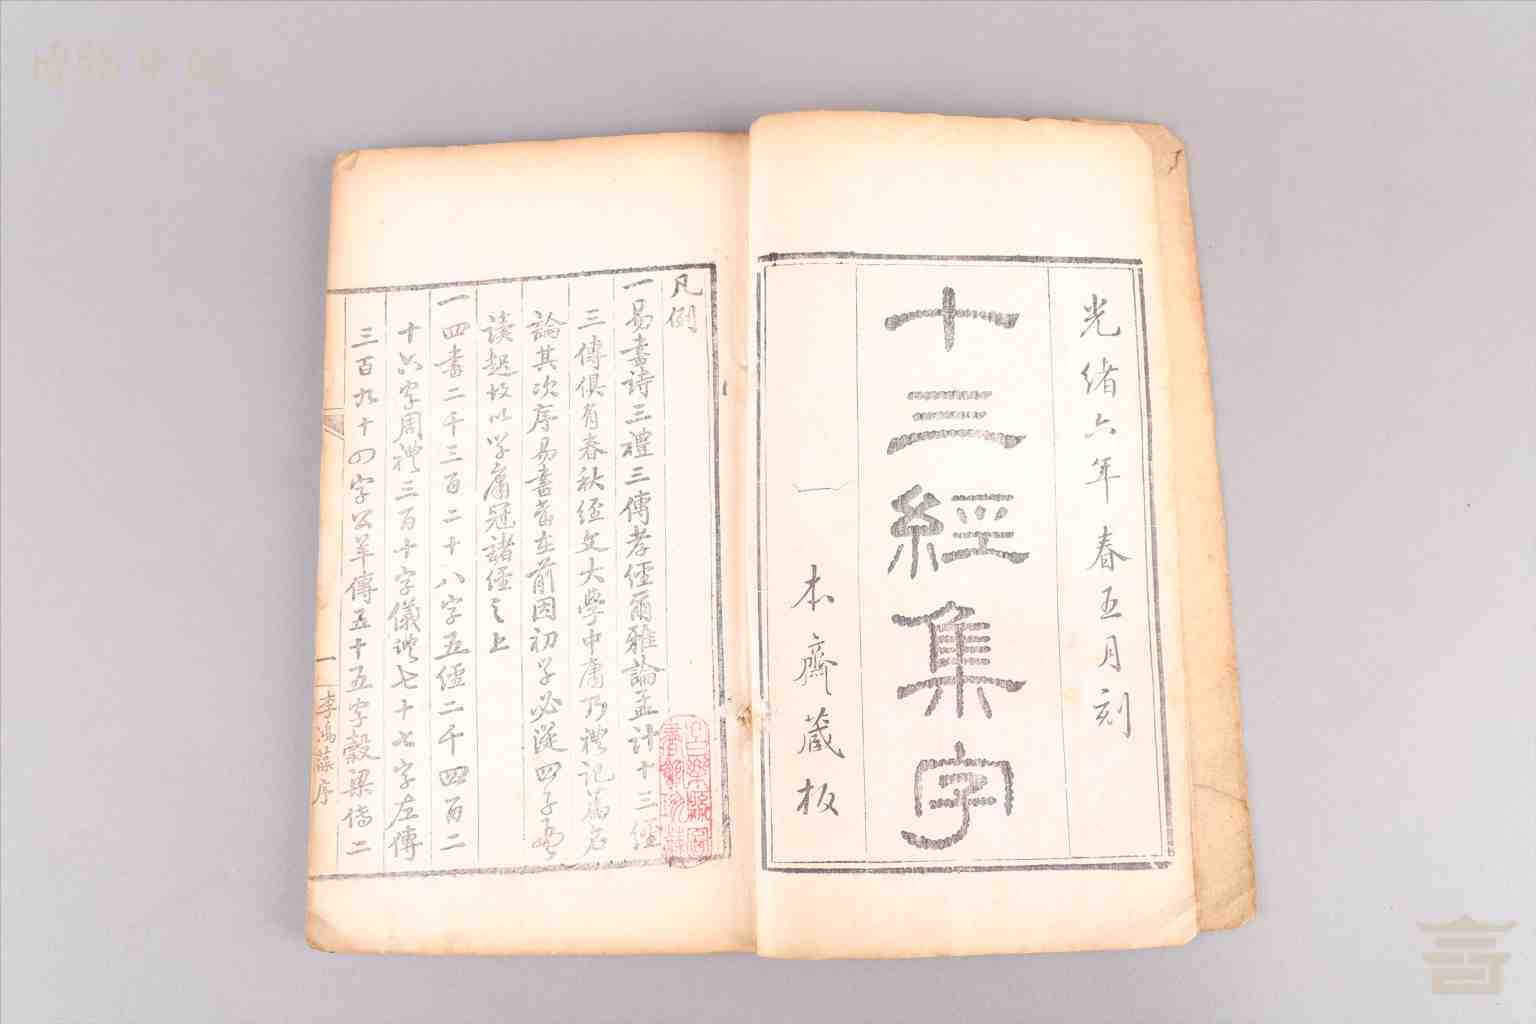 光緒六年春五月刻
十三經集字
本齋藏板
凡例
一易書詩三禮三傳孝經爾雅論孟計十三經
三傳俱有春秋經文大學中庸乃禮記篇名
論其次序易書當在前因初学必從四子書
讀起故以学庸冠諸經之上
一四書二千三百二十八字五經二千四百二
十六字周禮三百十字儀禮七十七字左傳
三百九十四字公羊傳五十五字穀梁傳二
一 李鴻藻序